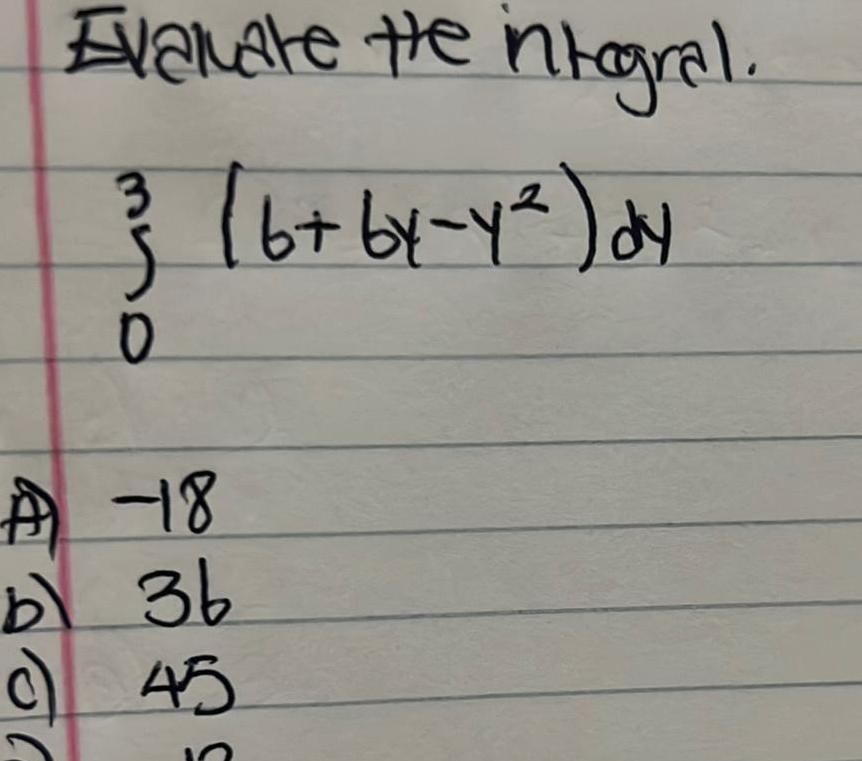 Evaluate the integral.
3
∫ (6+6y-y²)dy
0
A) -18
b) 36
c) 45